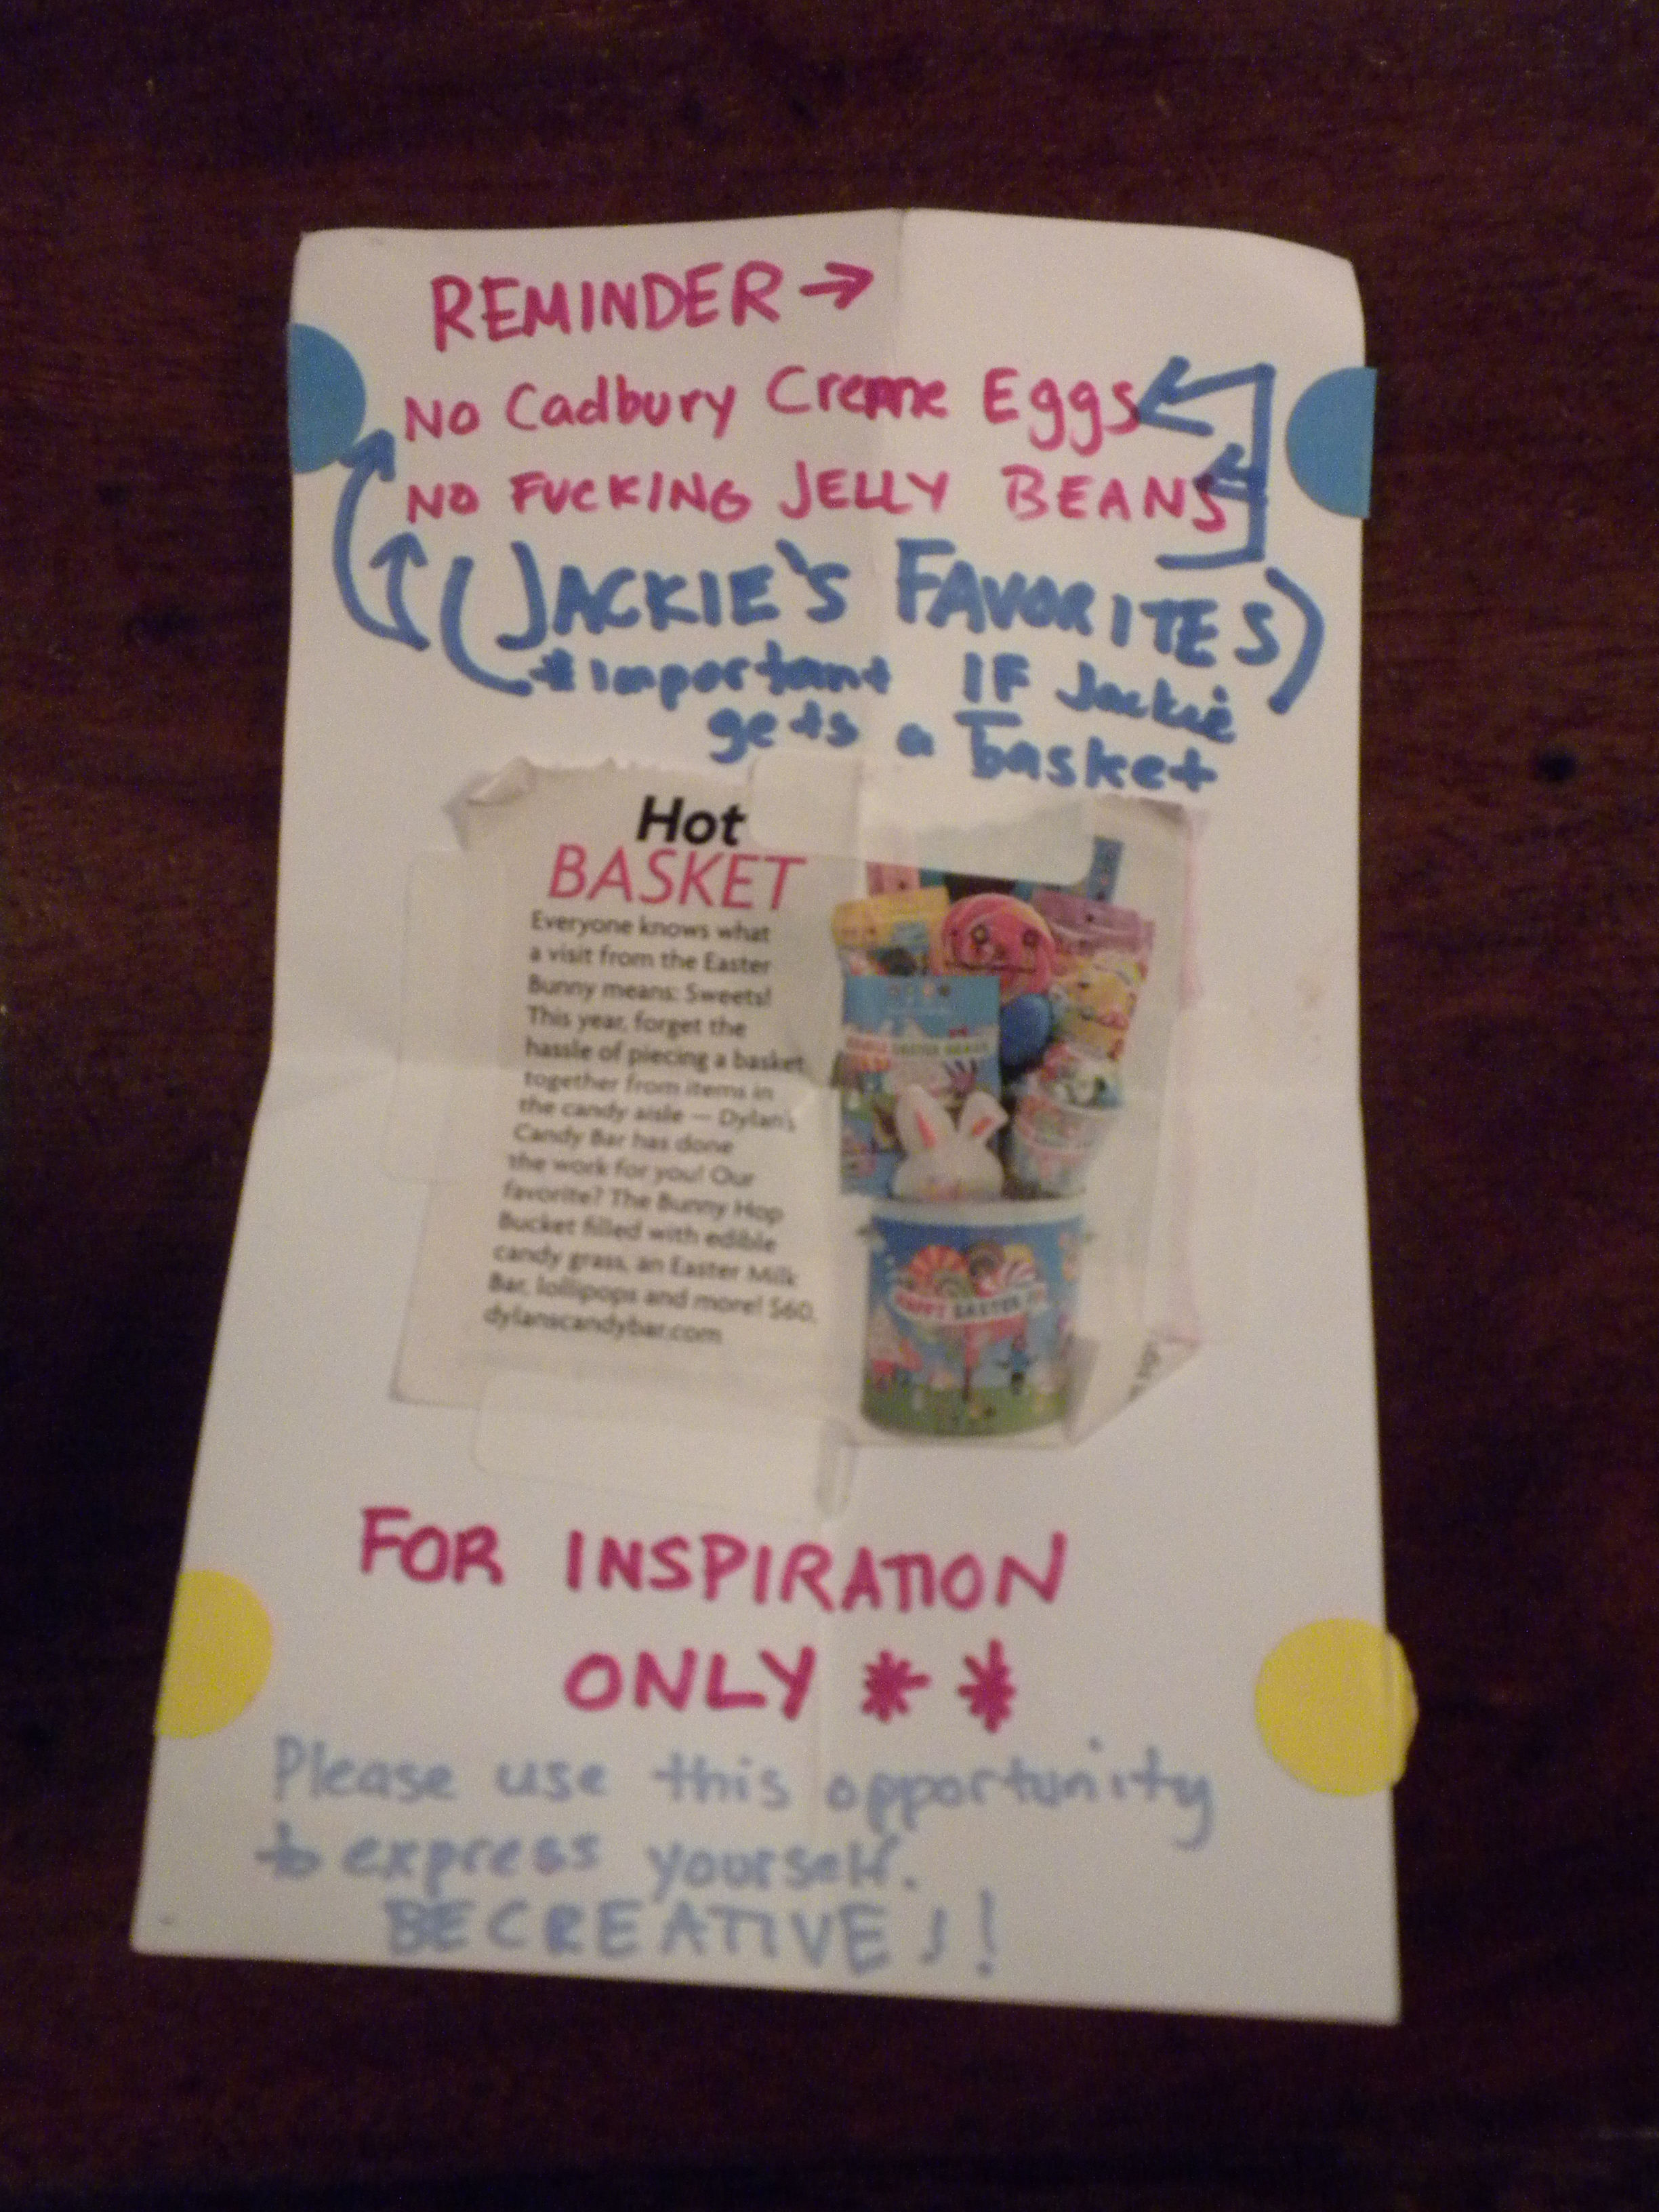 REMINDER →
No Cadbury Creme Eggs
NO FUCKING JELLY BEANS
(JACKIE'S FAVORITES)
*important IF Jackie
gets a basket
Hot
BASKET
Everyone knows what
a visit from the Easter
Bunny means: Sweets!
This year, forget the
hassle of piecing a basket
together from items in
the candy aisle — Dylan's
Candy Bar has done
the work for you! Our
favorite? The Bunny Hop
Bucket filled with edible
candy grass, an Easter Milk
Bar, lollipops and more! $60,
dylanscandybar.com
HAPPY EASTER
FOR INSPIRATION
ONLY **
Please use this opportunity
to express yourself.
BE CREATIVE J!